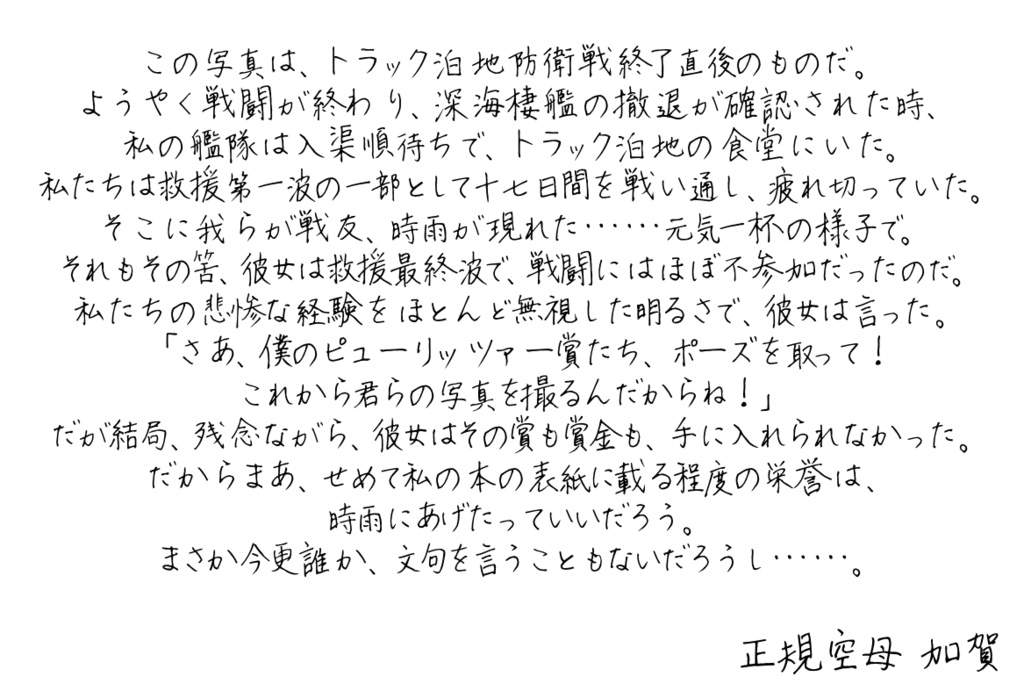 この写真は、トラック泊地防衛戦終了直後のものだ。
ようやく戦闘が終わり、深海棲艦の撤退が確認された時、
私の艦隊は入渠順待ちで、トラック泊地の食堂にいた。
私たちは救援第一波の一部として十七日間を戦い通し、疲れ切っていた。
そこに我らが戦友、時雨が現れた……元気一杯の様子で。
それもその筈、彼女は救援最終波で、戦闘にはほぼ不参加だったのだ。
私たちの悲惨な経験をほとんど無視した明るさで、彼女は言った。
「さあ、僕のピューリッツァー賞たち、ポーズを取って！
これから君らの写真を撮るんだからね！」
だが結局、残念ながら、彼女はその賞も賞金も、手に入れられなかった。
だからまあ、せめて私の本の表紙に載る程度の栄誉は、
時雨にあげたっていいだろう。
まさか今更誰か、文句を言うこともないだろうし……。
正規空母 加賀